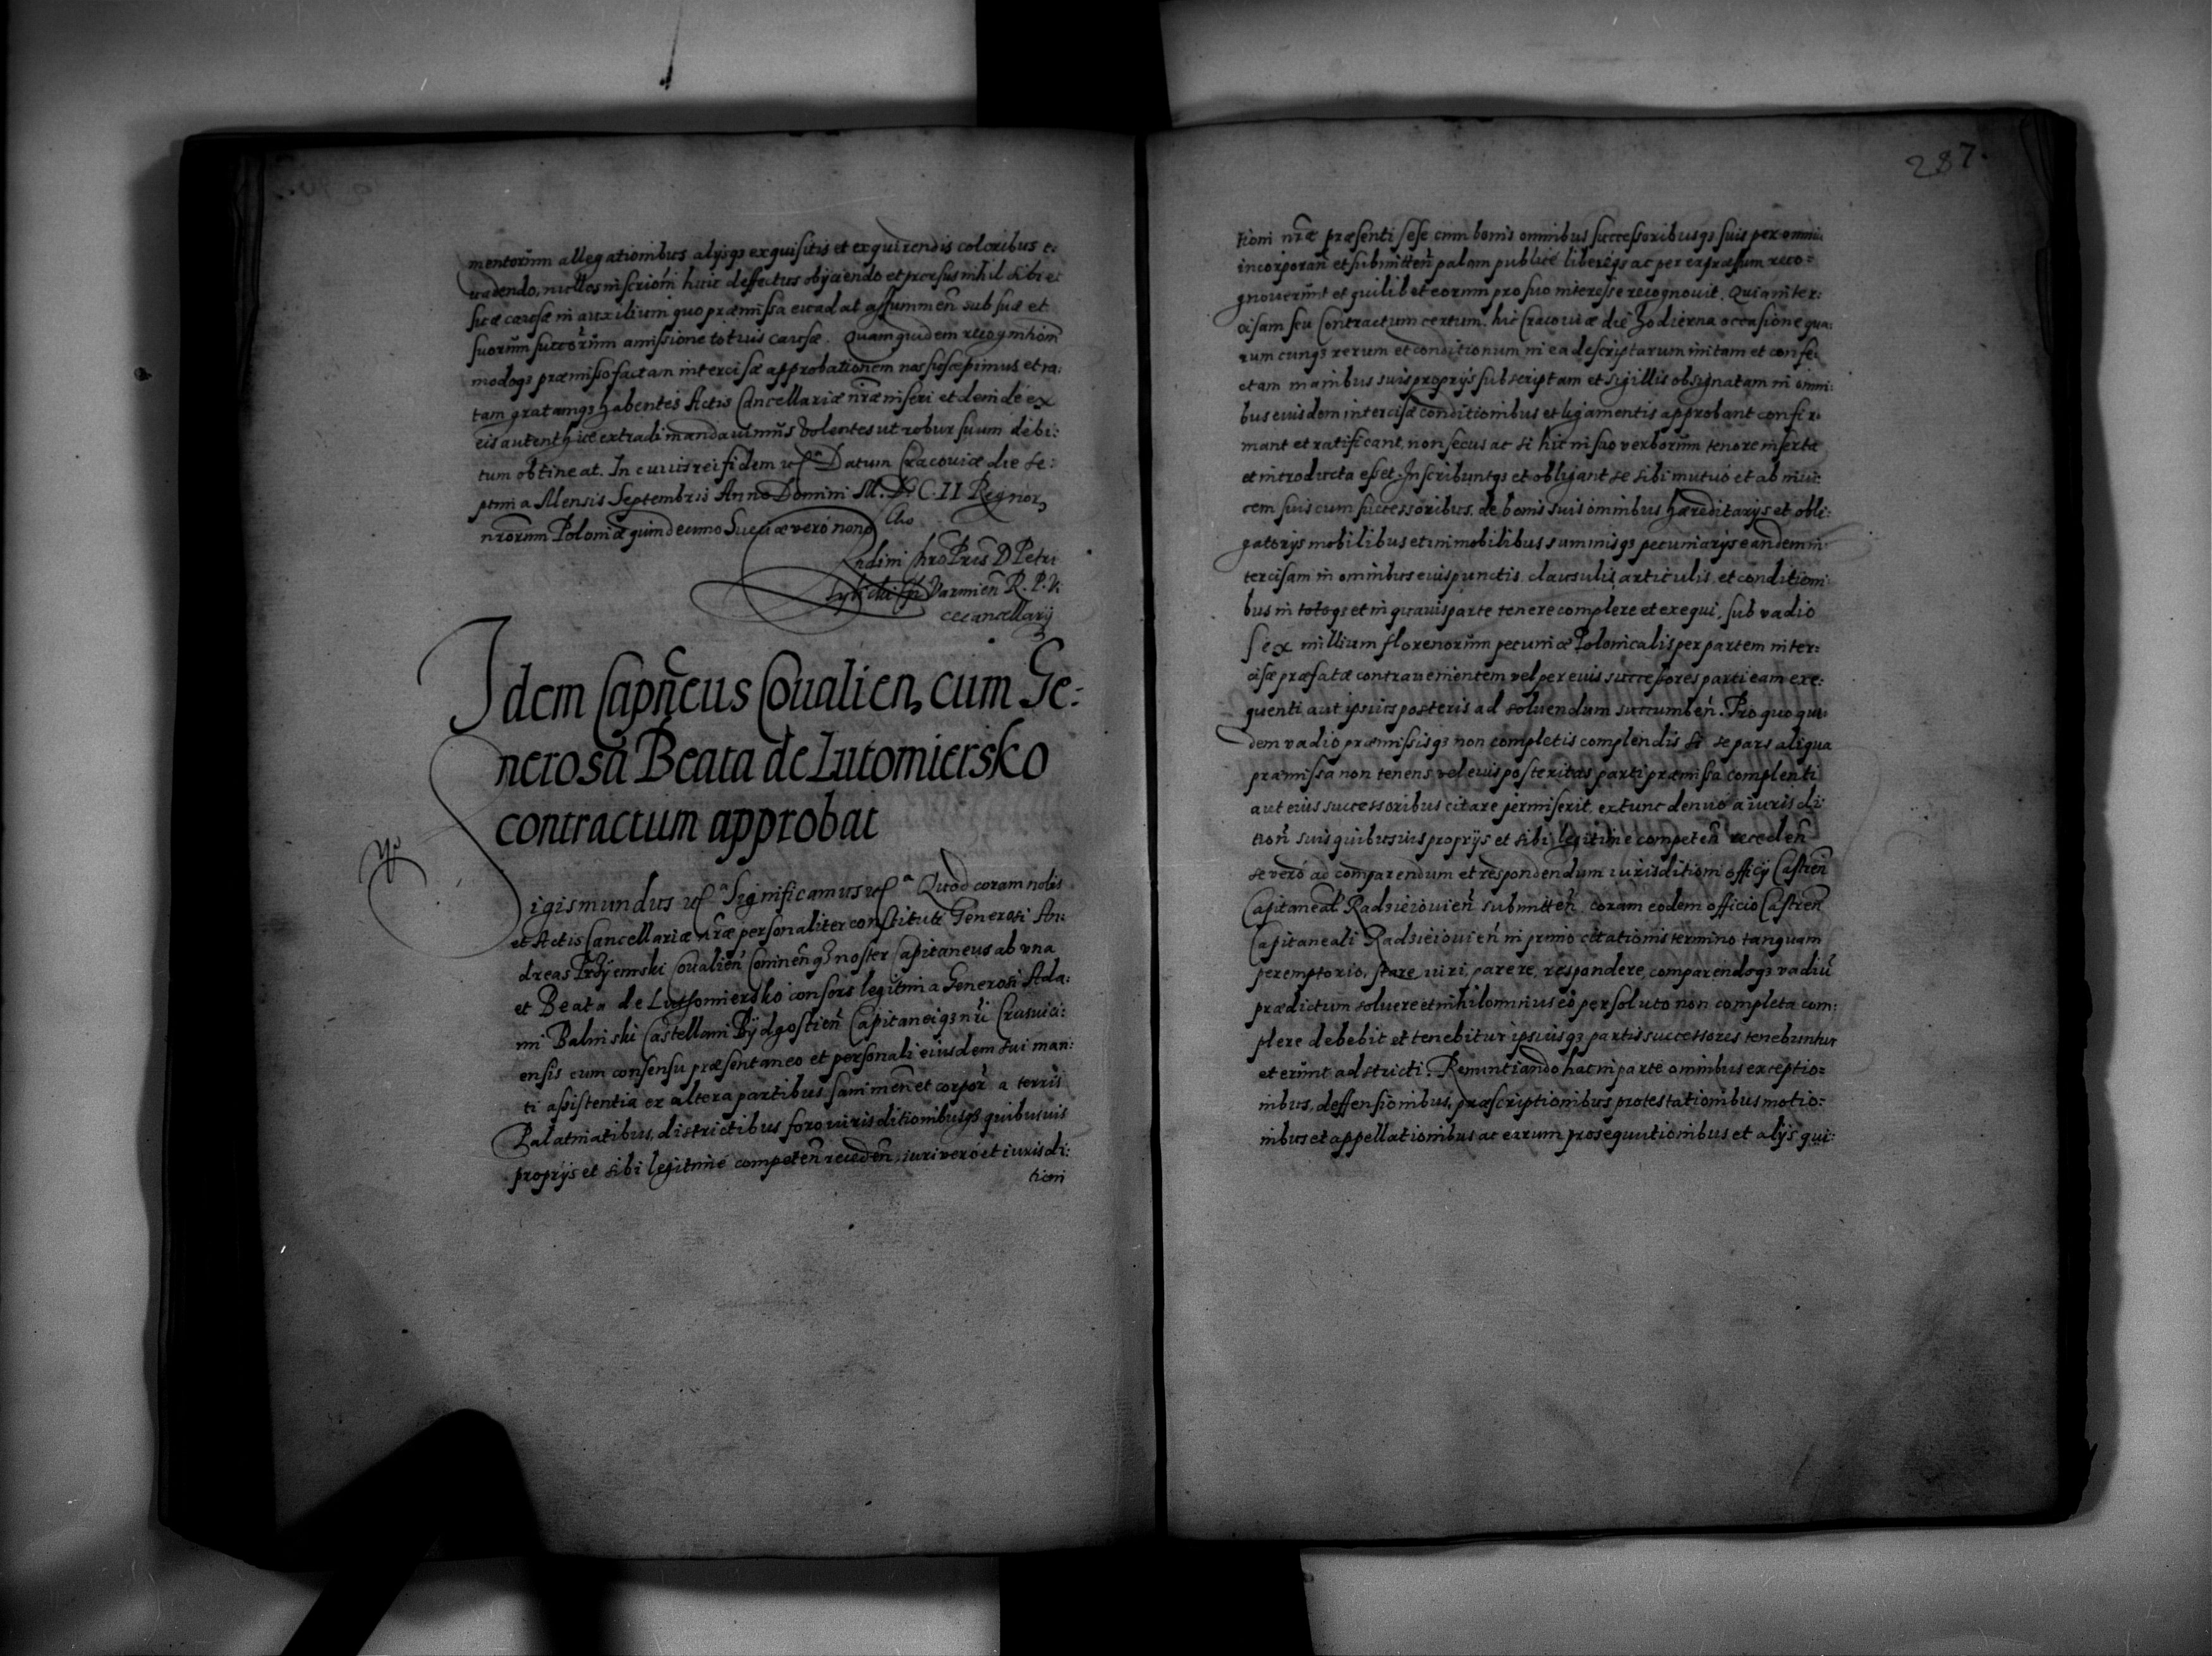 mentorum allegationibus alijsqȝ exquisitis et exquirendis coloribus e:
uadendo, nullos inscrioni huic deffectus obijciendo et prorsus nihil sibi et
suæ causæ in auxilium quo præmissa euadat assummen sub suæ et
suorum succorum amissione totius causæ. Quamquidem recognitiom
modoqȝ præmisso factam intercisæ approbationem nos suscepimus et ra:
tam gratamqȝ habentes Actis Cancellariæ nræ inseri et deinde ex
eis autenthice extradi mandauimus Volentes ut robur suum debi:
tum obtineat. In cuius rei fidem Datum Cracouiæ die se:
ptima Mensis Septembris Anno Domini M. D. C. II Regnor,
nrorum Poloniæ quindecimo Sueciæ verò nono
D Petri
Varmien R. P. Vi
cecancellarij
Idem Capneus Coualien, cum Ge:
nerosa Beata de Lutomiersko
contractum approbat
igismundus Significamus Quod coram nobis
et Actis Cancellariæ nræ personaliter constituti Generosi An:
dreas Przÿemski Coualien Coninenqȝ noster Capitaneus ab vna
et Beata de Luthomiersko consors legitima Generosi Ada:
mi Balinski Castellani Bÿdgostien Capitaneiqȝ nri Crusuici:
ensis cum consensu præsentaneo et personali eiusdem sui mari:
ti assistentia ex altera partibus sani men et corpor a terris
Palatinatibus, districtibus foro iurisditionibusqȝ quibusuis
proprijs et sibi legitimè competen receden, iuri verò et iurisdi:
tioni
287.
tioni nræ præsenti sese cum bonis omnibus successoribusqȝ suis per omnia
incorporan et submitten palam publicè liberèqȝ ac per expræssum reco=
gnouerunt et quilibet eorum pro suo interesse recognouit. Quia inter:
cisam seu Contractum certum, hic Cracouiæ die hodierna occasione qua:
rum cunqȝ rerum et conditionum in ea descriptarum initam et confe:
ctam manibus suis proprijs subscriptam et sigillis obsignatam in omni:
bus eiusdem intercisæ conditionibus et ligamentis approbant confir:
mant et ratificant, non secus ac si hic in suo verborum tenore inserta
et introducta esset. Inscribuntqȝ et obligant se sibi mutuo et ab inui:
cem suis cum successoribus, de bonis suis omnibus hæreditarijs et obli:
gatorijs mobilibus et immobilibus summisqȝ pecuniarijs eandem in
tercisam in omnibus eius punctis, clausulis articulis, et conditioni
bus in totoqȝ et in quauis parte tenere complere et exequi, sub vadio
sex millium florenorum pecuniæ Polonicalis per partem inter:
cisæ præfatæ contrauenientem vel per eius successores parti eam exe:
quenti aut ipsius posteris ad soluendum succumben. Pro quo qui:
dem vadio præmissisqȝ non completis complendis si se pars aliqua
præmissa non tenens vel eius posteritas parti præmissa complenti
aut eius successoribus citare permiserit, extunc denuò a iurisdi
tion suis quibusuis proprijs et sibi legitime competen receden
se verò ad comparendum et respondendum iurisditiom officij Castren
Capitaneal Radzieiouien submitten, coram eodem officio Castren
Capitaneali Radzieiouien in primo citationis termino tanquam
peremptorio, stare iuri, parere, respondere, comparendoqȝ vadiu
prædictum soluere et nihilominus eo persoluto non completa com:
plere debebit et tenebitur ipsiusqȝ partis successores tenebuntur
et erunt adstricti. Renuntiando hac in parte omnibus exceptio=
nibus, deffensionibus, præscriptionibus protestationibus motio=
nibus et appellationibus ac earum prosequutionibus et alijs qui: